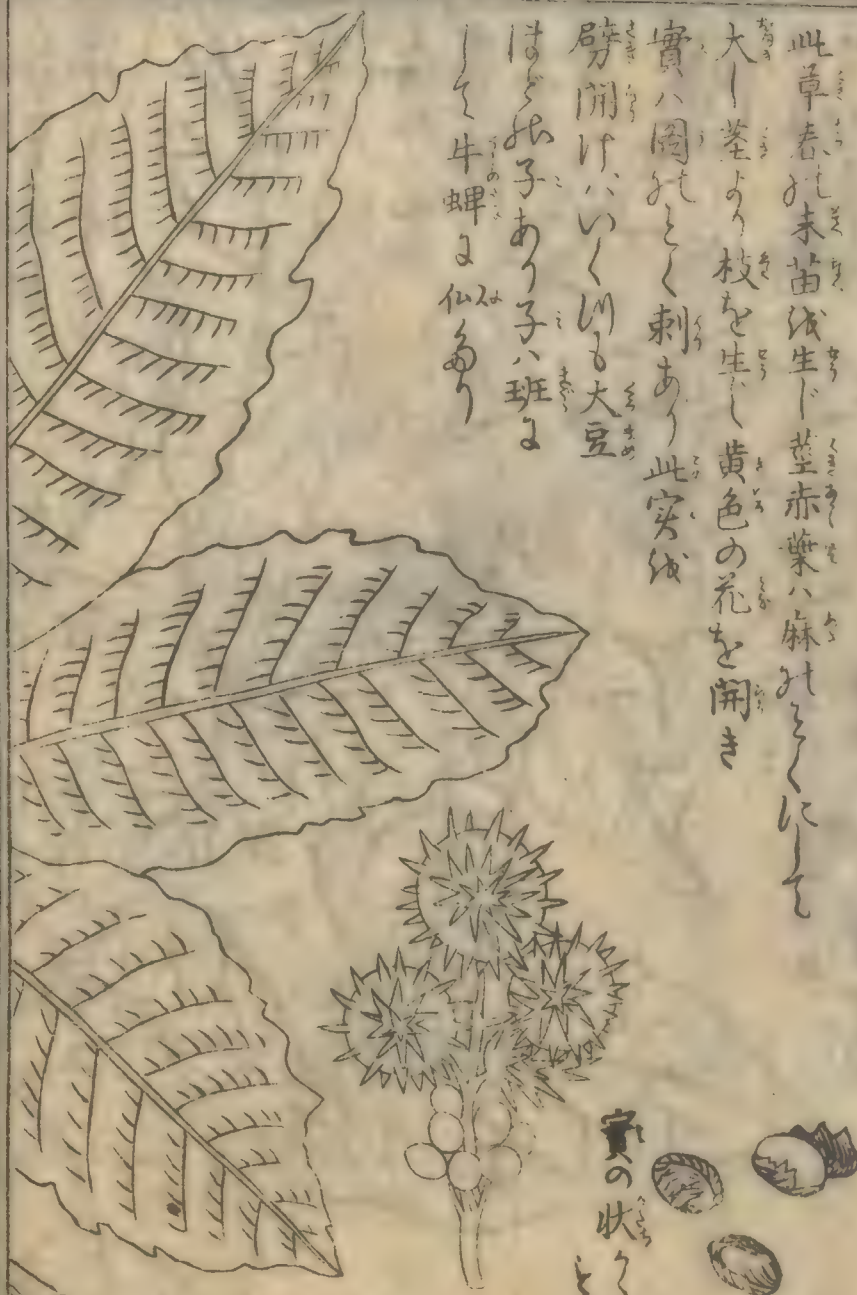 此草春の末苗を生じ茎赤葉ハ麻のことくにして
大し茎より枝を生じ黄色の花を開き
實ハ圖のことく刺あり此实を
劈開けハいくつも大豆
ほどの子あり子ハ班に
して牛蜱に似たり
實の状かく